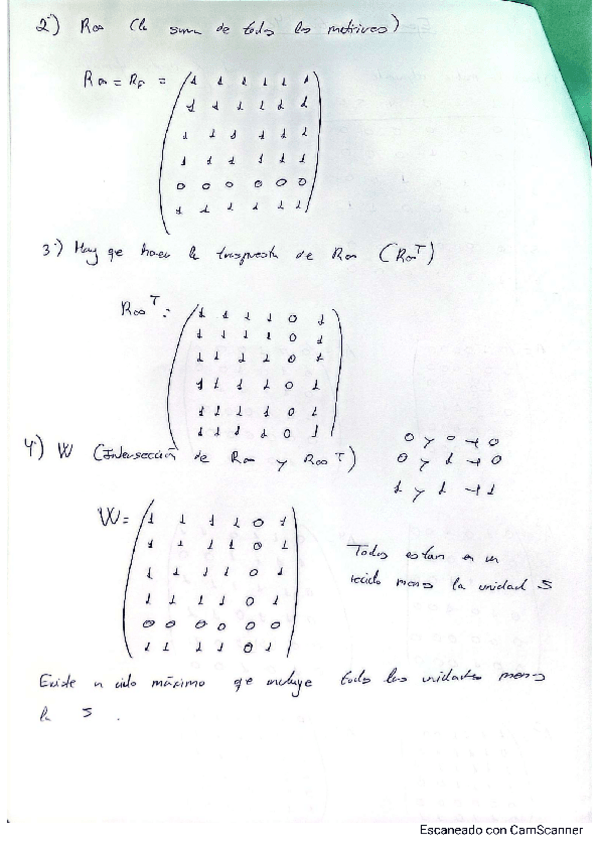 2º) R∞ (la suma de todos las matrices)
R∞ = RF =
1 1 1 1 1 1
1 1 1 1 1 1
1 1 1 1 1 1
1 1 1 1 1 1
0 0 0 0 0 0
1 1 1 1 1 1
3º) Hay que hacer la traspuesta de R∞ (R∞ᵀ)
R∞ᵀ =
1 1 1 1 0 1
1 1 1 1 0 1
1 1 1 1 0 1
1 1 1 1 0 1
1 1 1 1 0 1
1 1 1 1 0 1
4º) W (Intersección de R∞ y R∞ᵀ)
0 y 0 → 0
0 y 1 → 0
1 y 1 → 1
W =
1 1 1 1 0 1
1 1 1 1 0 1
1 1 1 1 0 1
1 1 1 1 0 1
0 0 0 0 0 0
1 1 1 1 0 1
Todos estan en un
menos la unidad 5
Existe un ciclo máximo que incluye todas las unidades menos
la 5.
Escaneado con CamScanner